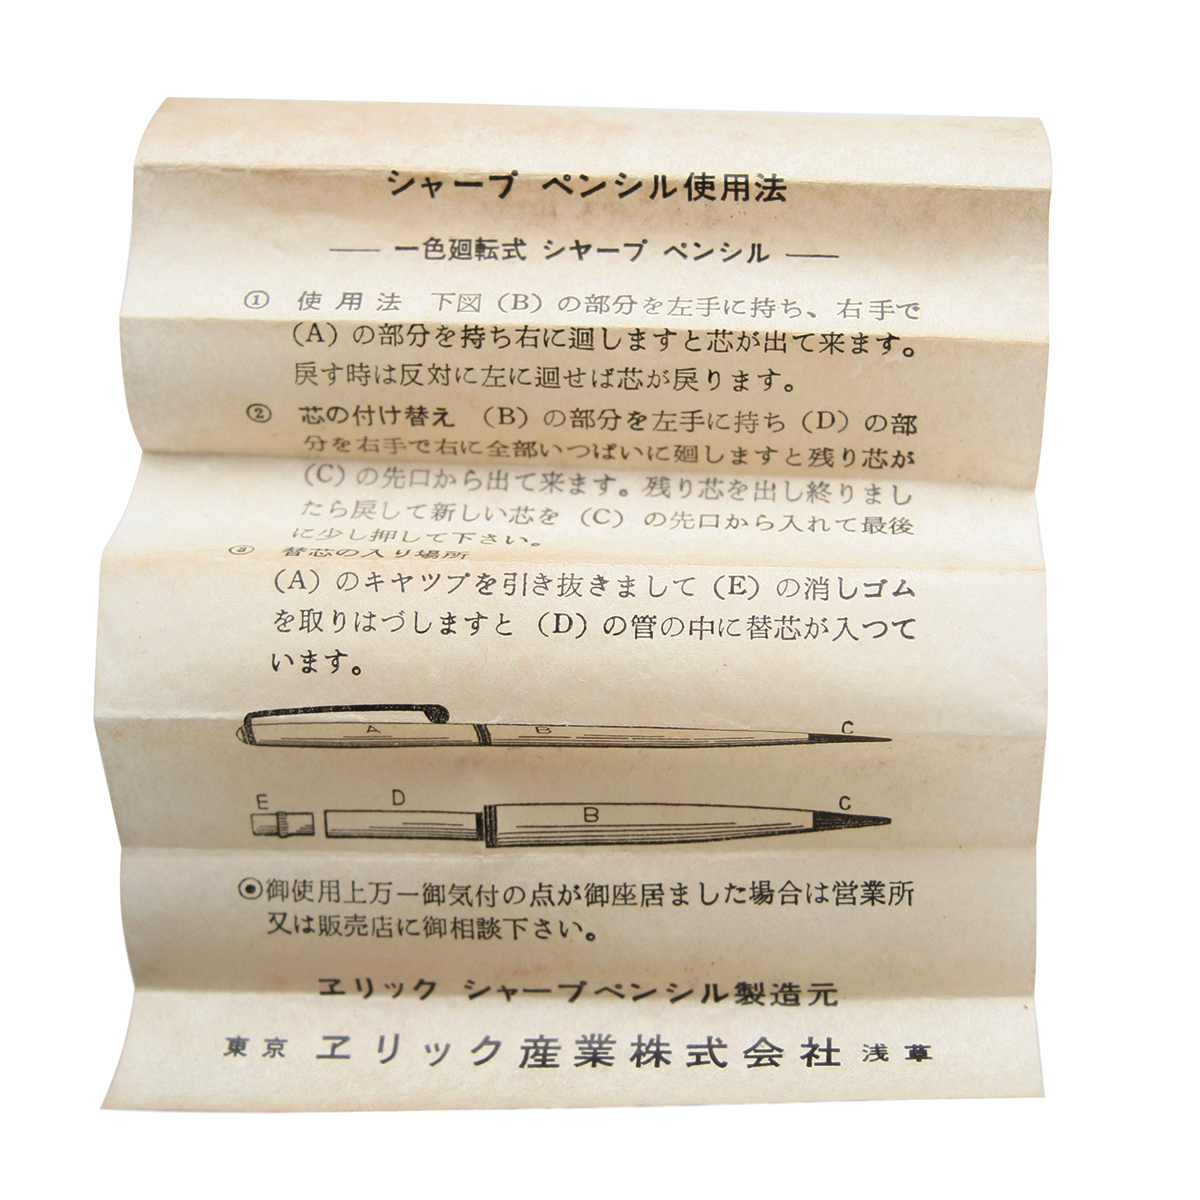 シャープ ペンシル使用法
── 一色廻転式 シヤープ ペンシル ──
① 使用法 下図（B）の部分を左手に持ち、右手で
（A）の部分を持ち右に廻しますと芯が出て来ます。
戻す時は反対に左に廻せば芯が戻ります。
② 芯の付け替え （B）の部分を左手に持ち（D）の部
分を右手で右に全部いつぱいに廻しますと残り芯が
（C）の先口から出て来ます。残り芯を出し終りまし
たら戻して新しい芯を（C）の先口から入れて最後
に少し押して下さい。
③ 替芯の入り場所
（A）のキヤツプを引き抜きまして（E）の消しゴム
を取りはづしますと（D）の管の中に替芯が入つて
います。
A B C
E D B C
◉御使用上万一御気付の点が御座居ました場合は営業所
又は販売店に御相談下さい。
ヱリック シャープペンシル製造元
東京 ヱリック産業株式会社 浅草